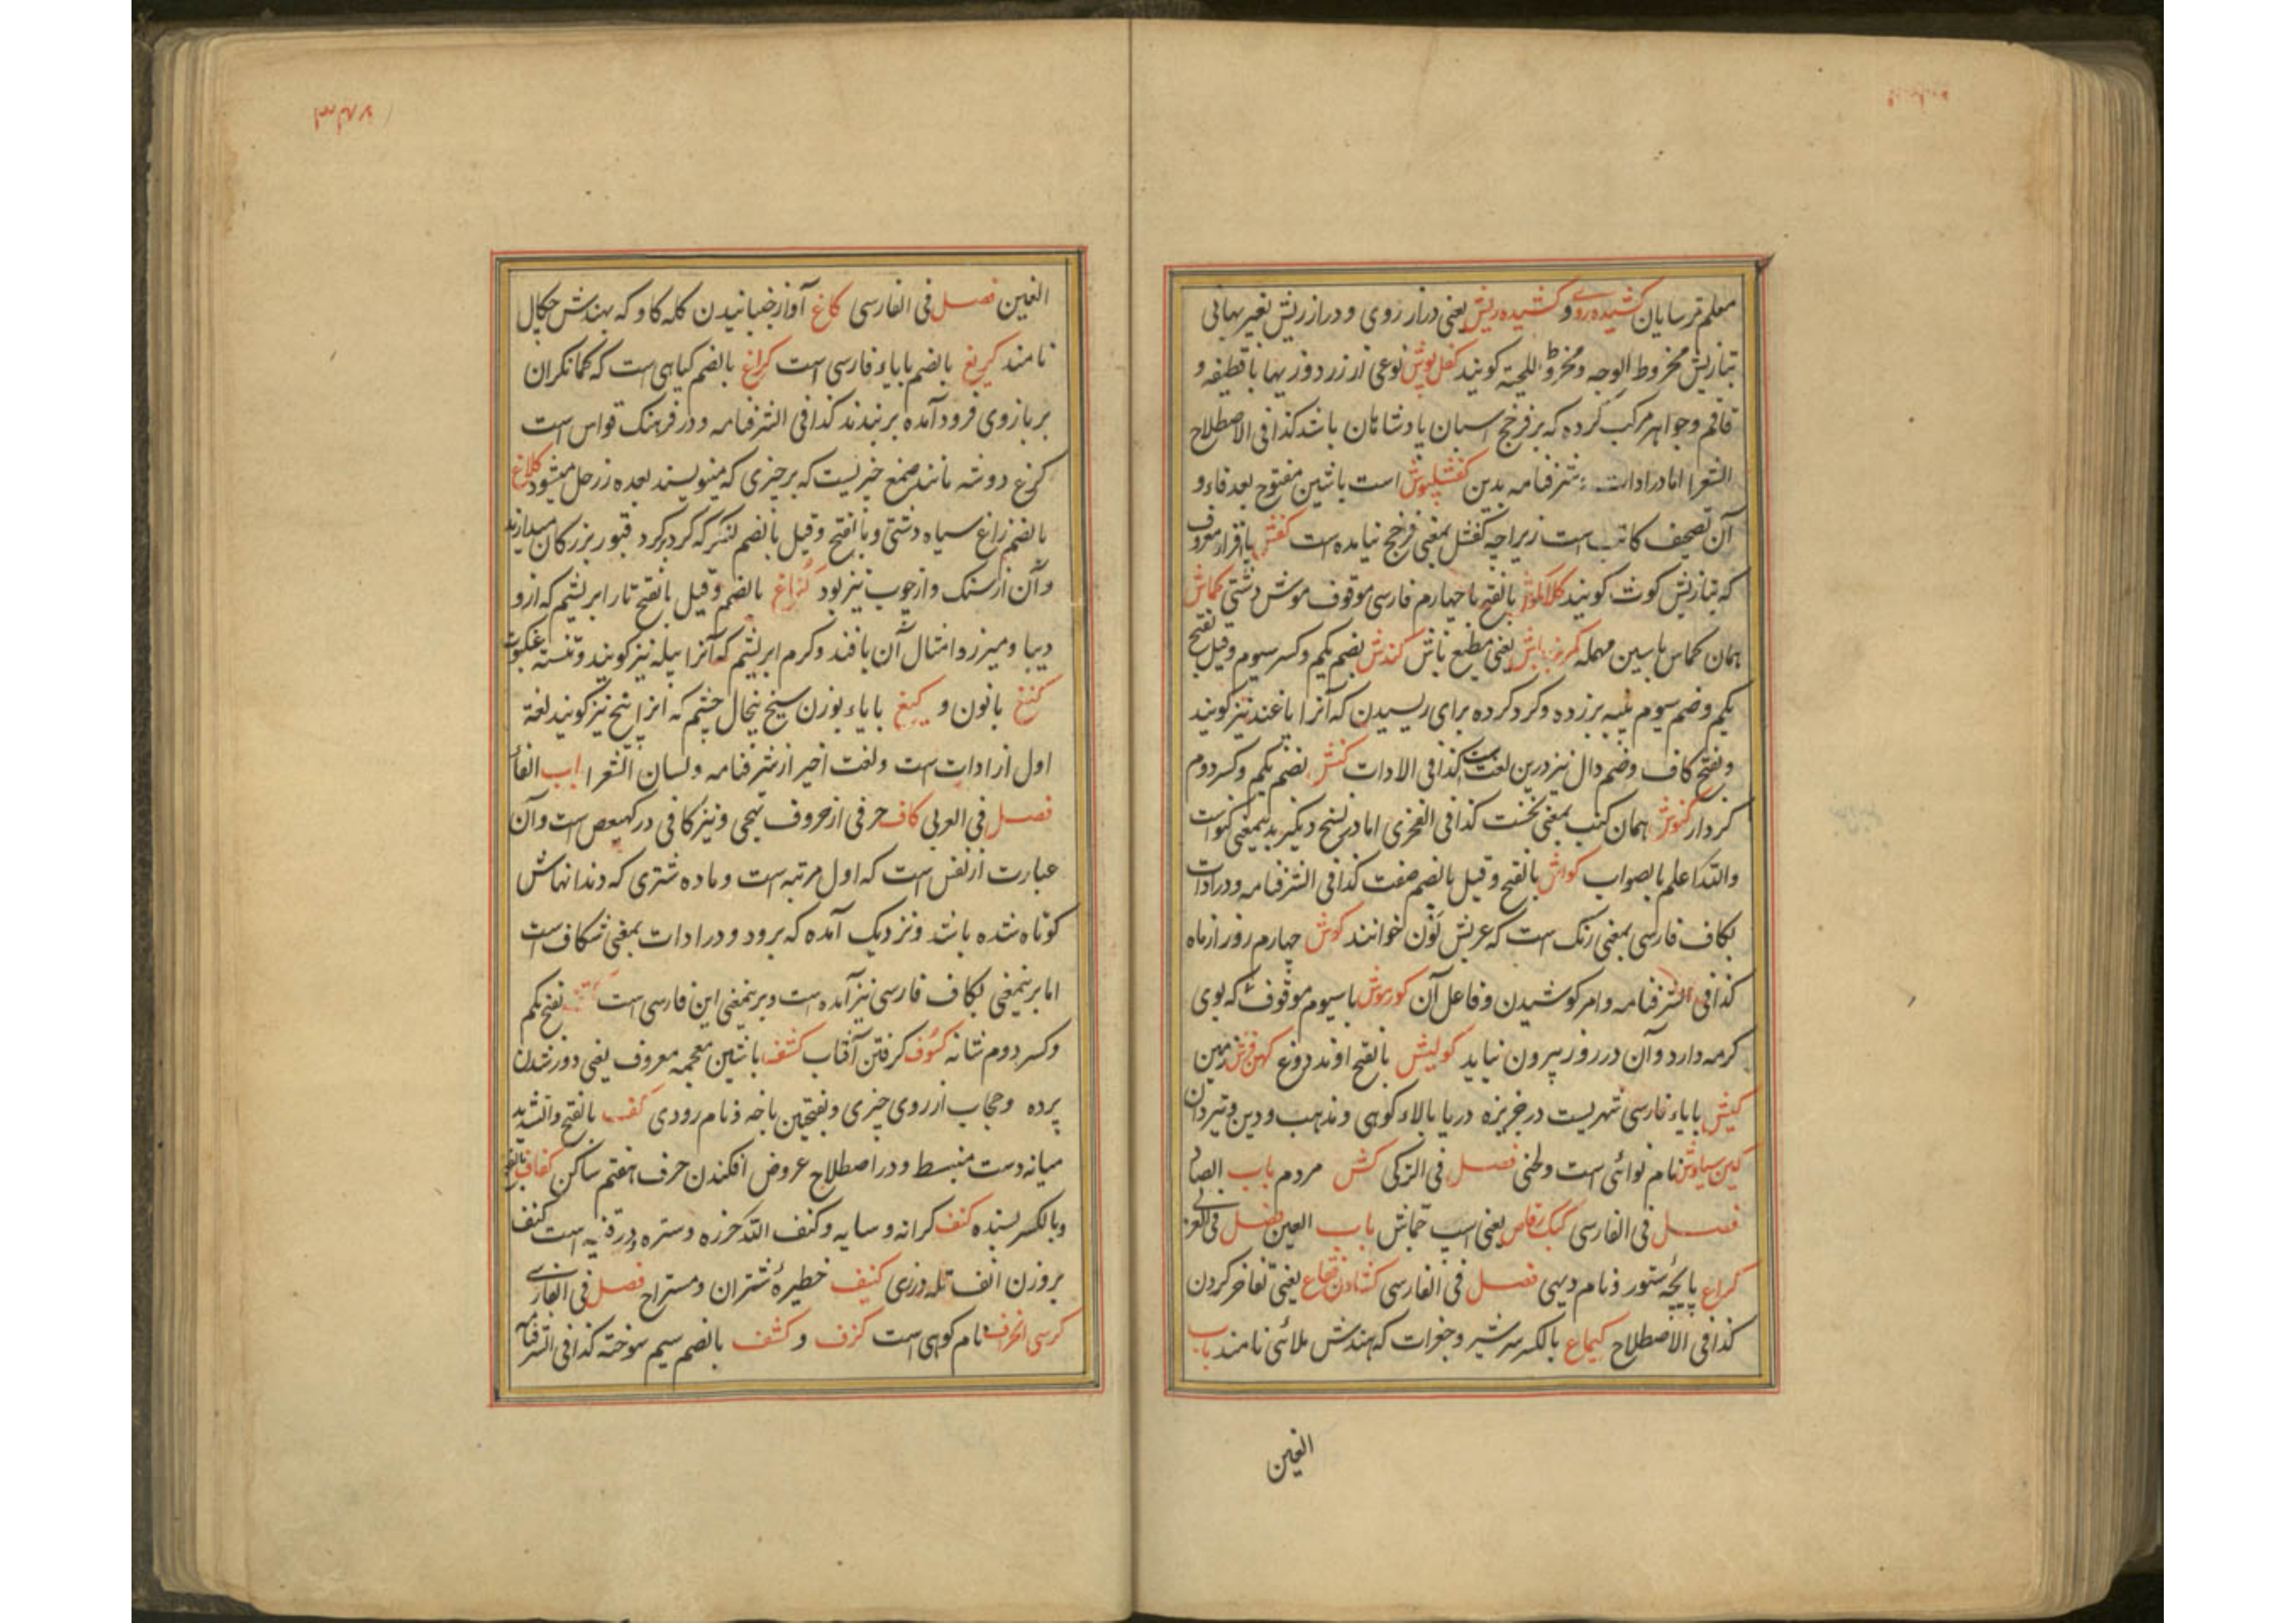 معلم ترسایان کشیده روی و کشیده ریش یعنی دراز روی و دراز ریش بغیر پهنائی
تبازیش مخروط الوجه و مخروط اللحیة کویند کفل پوش نوعی از زردوزیها با قطیفه و
قاقم و جواهر مرکب کرده که بر فرخج اسبان پادشاهان باشد کذا فی الاصطلاح
الشعرا اما در ادات شرفنامه بدین کفشلپوش است باشین مفتوح بعد فاء و
آن تصحیف کاتب است زیراچه کفشل بمعنی فرخج نیامده است کفش باقرار معروف
که تبازیش کوث کویند کلاکموش بالفتح با چهارم فارسی موقوف موش دشتی کماش
همان کماس باسین مهمله باش یعنی مطیع باش کندش بضم یکم و کسر سیوم و قیل بفتح
یکم و ضم سیوم پنبه برزده و کرد کرده برای ریسیدن که آنرا باغند نیز کویند
و بفتح کاف و ضم دال نیز درین لغت است کذا فی الادات کنش بضم یکم و کسر دوم
کردار کنوش همان کنب بمعنی نخست کذا فی الفخری اما در نسخ دیکر بدینمعنی
والله اعلم بالصواب کواش بالفتح و قیل بالضم صفت کذا فی الشرفنامه و در ادات
بکاف فارسی بمعنی رنک است که عربیش لون خوانند کوش چهارم روز از ماه
کذا فی الشرفنامه و امر کوشیدن و فاعل آن کورموش با سیوم موقوف که بوی
کرمه دارد و آن در روز بیرون نیاید کولیش بالفتح اوند دوغ کهن فرش زمین
کیش بایاء فارسی شهریست در جزیره دریا بالاء کوهی و مذهب و دین و تیردان
کین سیاوش نام نوائی است و لحنی فصل فی الترکی کش مردم باب الصاد
فصل فی الفارسی کبک رقاص یعنی اسپ جماش باب العین فصل فی العربی
کراع پایچه ستور و نام دیهی فصل فی الفارسی کشادن فقاع یعنی تفاخر کردن
کذا فی الاصطلاح کیماع بالکسر سر شیر و جغرات که هندش ملائی نامند باب
الغین
الغین فصل فی الفارسی کاغ آواز جنبانیدن کله کاو که بهندش جکال
نامند کریغ بالضم بایاء فارسی است کراغ بالضم کیاهی است که کمانکران
بر بازوی فرود آمده بر بندند کذا فی الشرفنامه و در فرهنک قواس است
کرغ دوشه مانند صمغ چیزیست که بر چیزی که مینویسند بعده زر حل میشود کلاغ
بالضم زاغ سیاه دشتی و بالفتح و قیل بالضم کنکر که کرد بر کرد قبور بزرکان میدارند
و آن از سنک و از چوب نیز بود کناغ بالضم و قیل بالفتح تار ابریشم که ازو
دیبا و میزر و امثال آن بافند و کرم ابریشم که آنرا پیله نیز کویند و تنسته عنکبوت
کنغ بانون و کیغ بایاء بوزن سیخ پنجال چشم که انرا پیخ نیز کویند لغة
اول از ادات است و لغت اخیر از شرفنامه و لسان الشعرا باب الفاء
فصل فی العربی کاف حرفی از حروف تهجی و نیز کافی در کهیعص است و آن
عبارت از نفس است که اول مرتبه است و ماده شتری که دندانهاش
کوتاه شده باشد و نزدیک آمده که برود و در ادات بمعنی شکاف است
اما برینمعنی بکاف فارسی نیز آمده است و برینمعنی این فارسی است بفتح یکم
و کسر دوم شانه کسوف کرفتن آفتاب کشف باشین معجمه معروف یعنی دور شدن
پرده و حجاب از روی چیزی و بفتحین باخه و نام رودی کف بالفتح و التشدید
میانه دست منبسط و در اصطلاح عروض افکندن حرف هفتم ساکن کفاف بالفتح
و بالکسر بسنده کنف کرانه و سایه و کنف الله حرزه و ستره و در قنیه است کنف
بروزن انف تله درزی کنیف خطیرهٔ شتران و مستراح فصل فی الفارسی
کرسی نام کوهی است کزف و کشف بالضم سیم سوخته کذا فی الشرفنامه